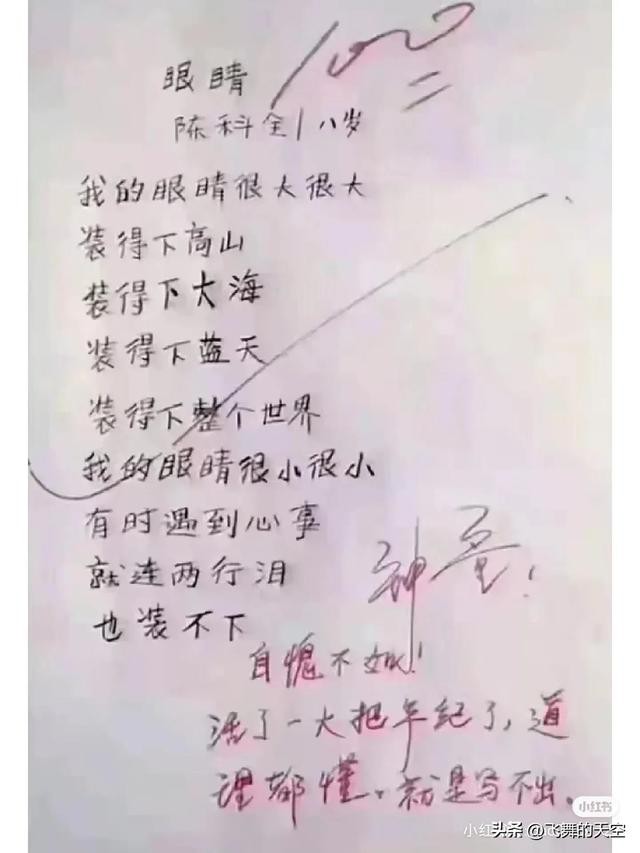 眼睛
100
陈科全 | 八岁
我的眼睛很大很大
装得下高山
装得下大海
装得下蓝天
装得下整个世界
我的眼睛很小很小
有时遇到心事
就连两行泪
也装不下
神童!
自愧不如!
活了一大把年纪了,道
理都懂。就是写不出。
小红书
头条 @飞舞的天空